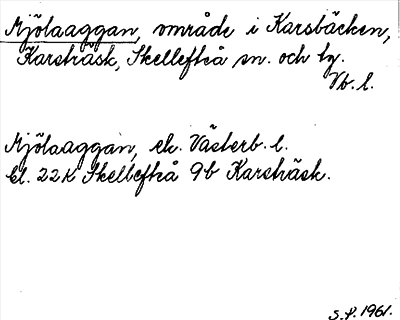 Mjölaaggan, område i Karsbäcken,
Karsträsk, Skellefteå sn. och tg.
Vb. l.
Mjölaaggan, ek. Västerb. l.
Bl. 22K Skellefteå 9b Karsträsk.
S.P. 1961.